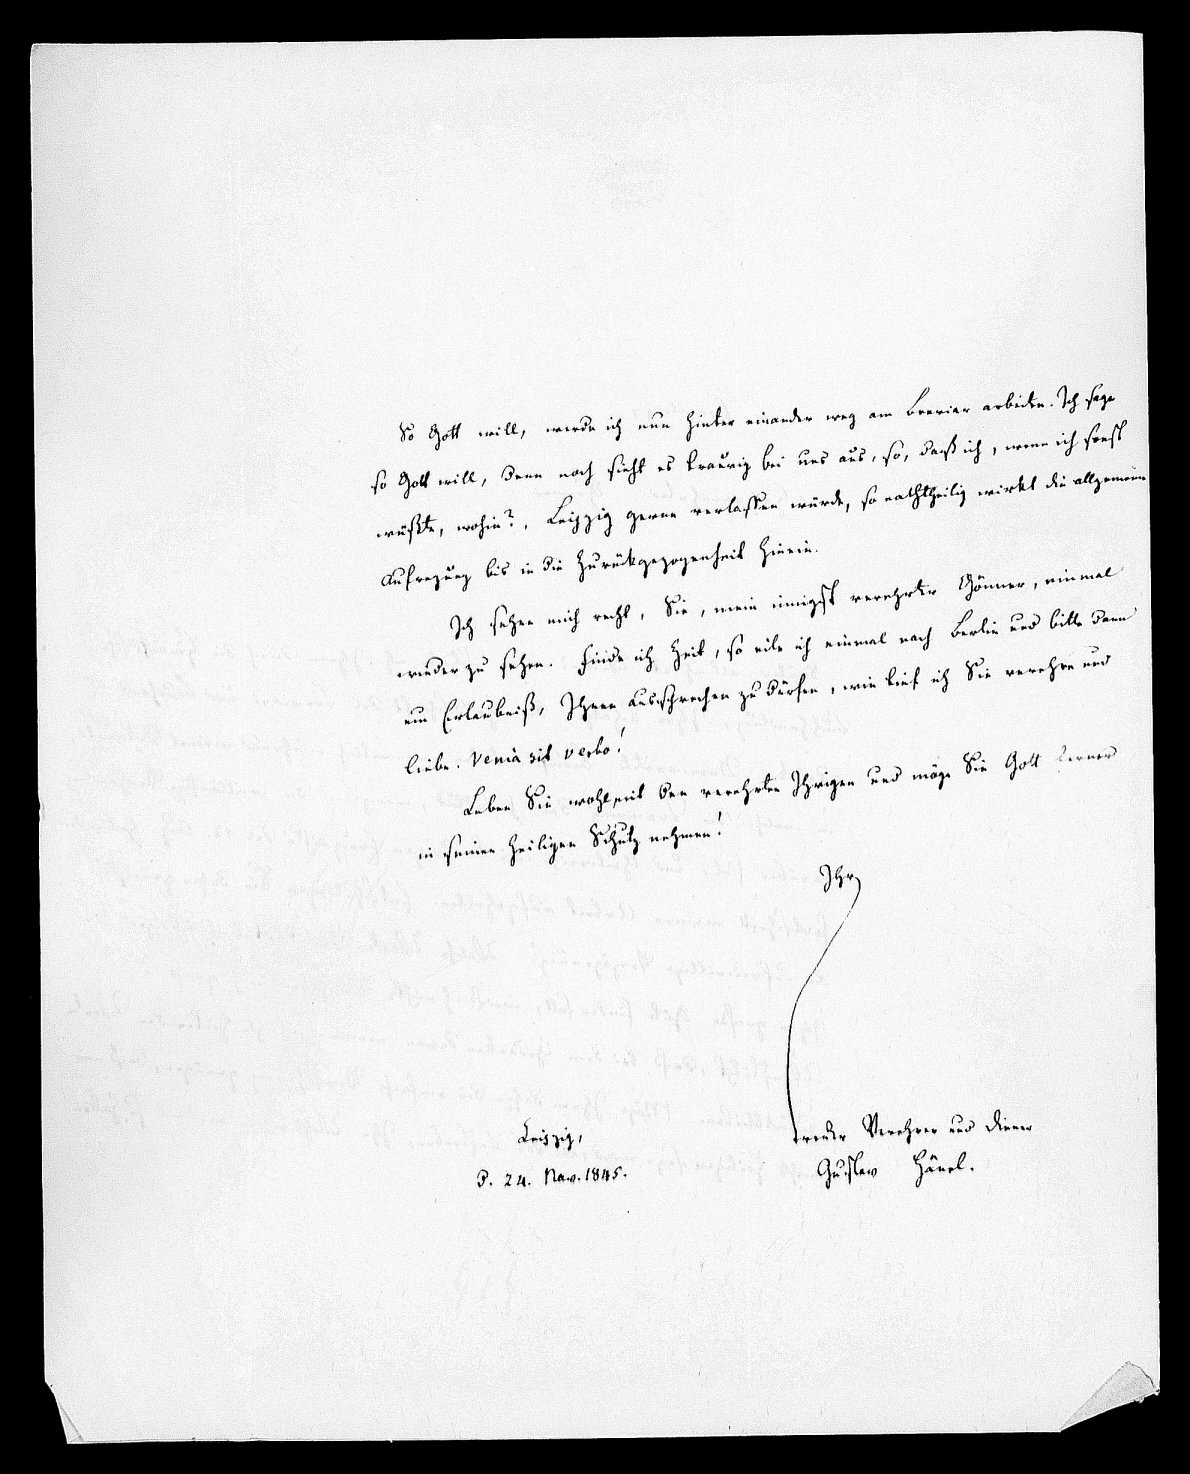 So Gott will, werde ich nun hinter einander weg am Breviar arbeiten. Ich sage
so Gott will, denn noch sieht es traurig bei uns aus, so, daß ich, wenn ich sonst
wüßte, wohin?, Leipzig gerne verlassen würde, so nachtheilig wirkt die allgemeine
Aufregung bis in die Zurückgezogenheit hinein.
Ich sehne mich recht, Sie, mein innigst verehrter Gönner, einmal
wieder zu sehen. Finde ich Zeit, so eile ich einmal nach Berlin und bitte dann
um Erlaubniß, Ihnen aussprechen zu dürfen, wie tief ich Sie verehre und
liebe. Venia sit verbo!
Leben Sie wohl mit den verehrten Ihrigen und möge Sie Gott ferner
in seinen heiligen Schutz nehmen!
Ihr
treuer Verehrer und Diener
Gustav Hänel.
Leipzig,
d. 24. Nov. 1845.